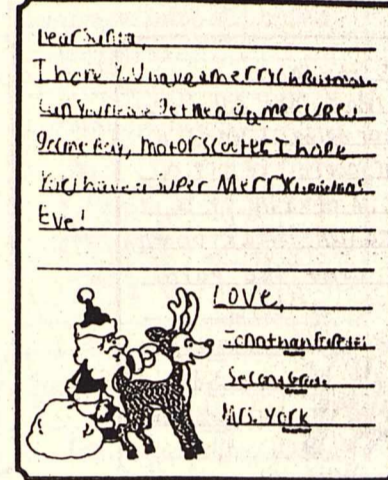 Dear Santa,
I hope you have a merry christmas.
Can you please get me a game cube,
game boy, motor scooter I hope
you have a super Merry christmas
Eve!
LOVE,
Jonathan
Second Grade
Mrs. York